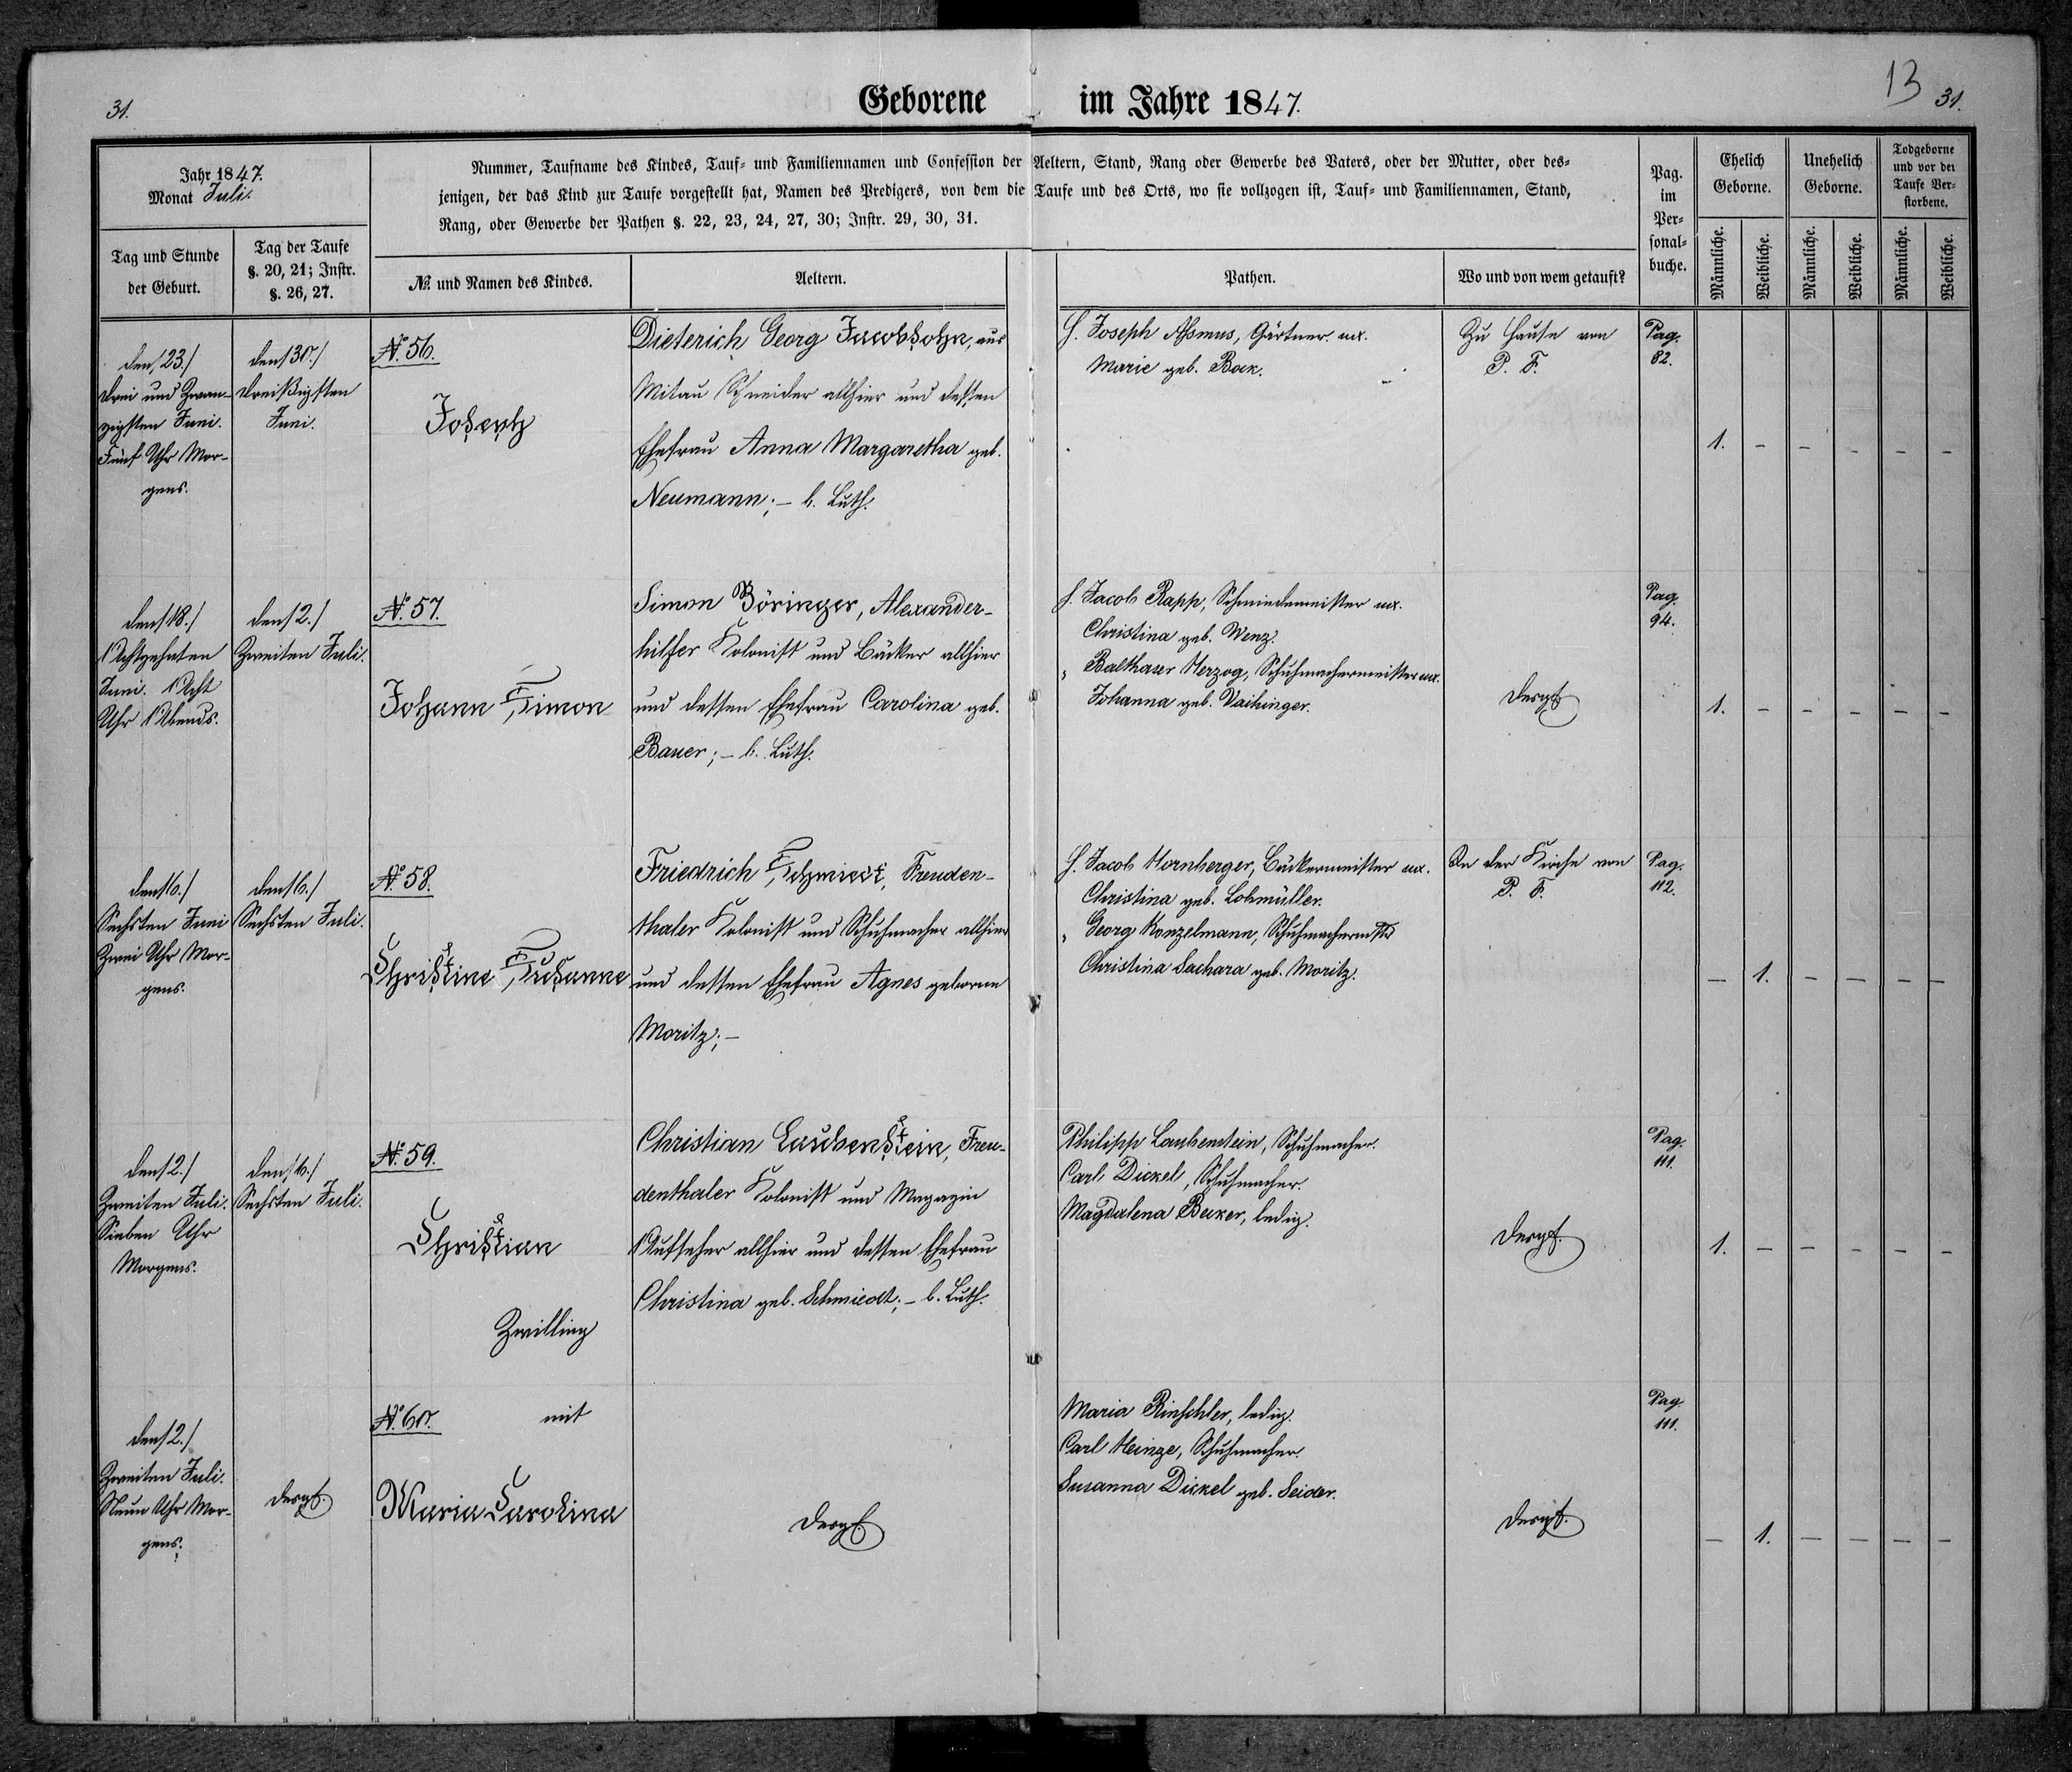 31.
Geborene im Jahre 1847.
13
31.
Jahr 1847.
Monat Juli.
Nummer, Taufname des Kindes, Tauf- und Familiennamen und Confession der Aeltern, Stand, Rang oder Gewerbe des Vaters, oder der Mutter, oder des-
jenigen, der das Kind zur Taufe vorgestellt hat, Namen des Predigers, von dem die Taufe und des Orts, wo sie vollzogen ist, Tauf- und Familiennamen, Stand,
Rang, oder Gewerbe der Pathen §. 22, 23, 24, 27, 30; Instr. 29, 30, 31.
Pag.
im
Per-
sonal-
buche.
Ehelich
Geborne.
Unehelich
Geborne.
Todgeborne
und vor der
Taufe Ver-
storbene.
Tag und Stunde
der Geburt.
Tag der Taufe
§. 20, 21; Instr.
§. 26, 27.
№ und Namen des Kindes.
Aeltern.
Pathen.
Wo und von wem getauft?
Männliche.
Weibliche.
Männliche.
Weibliche.
Männliche.
Weibliche.
den /23./
drei und Zwan-
zigsten Juni.
Fünf Uhr Mor-
gens.
den /30./
dreißigsten
Juni.
№ 56.
Joseph
Dieterich Georg Jacobsohn, aus
Mitau Schneider allhier und dessen
Ehefrau Anna Margaretha geb.
Neumann; – b. Luth.
H. Joseph Assmus, Gärtner ux.
Marie geb. Bock.
Zu Hause von
P. F.
Pag.
82.
1. – – – – –
den /18./
Achtzehnten
Juni. Acht
Uhr Abends.
den /2./
Zweiten Juli.
№ 57.
Johann Simon
Simon Böringer, Alexander-
hilfer Kolonist und Bäcker allhier
und dessen Ehefrau Carolina geb.
Bauer; – b. Luth.
H. Jacob Rapp, Schmiedemeister ux.
Christina geb. Wenz.
" Balthaser Herzog, Schuhmachermeister ux.
Johanna geb. Vaihinger.
desgl.
Pag.
94.
1. – – – – –
den /6./
Sechsten Juni
Zwei Uhr Mor-
gens.
den /6./
Sechsten Juli.
№ 58.
Christine Susanne
Friedrich Schmiedt, Freuden-
thaler Kolonist und Schuhmacher allhier
und dessen Ehefrau Agnes geborne
Moritz; –
H. Jacob Hornberger, Bäckermeister ux.
Christina geb. Lohmüller.
" Georg Konzelmann, Schuhmachermstr
Christina Sachara geb. Moritz.
In der Kirche von
P. F.
Pag.
112.
– 1. – – – –
den /2./
Zweiten Juli.
Sieben Uhr
Morgens.
den /6./
Sechsten Juli.
№ 59.
Christian
Zwilling
Christian Laubenstein, Freu-
denthaler Kolonist und Magazin
Aufseher allhier und dessen Ehefrau
Christina geb. Schmiedt; – b. Luth.
Philipp Laubenstein, Schuhmacher.
Carl Dickel, Schuhmacher.
Magdalena Becker, ledig.
desgl.
Pag.
111.
1. – – – – –
den /2./
Zweiten Juli.
Neun Uhr Mor-
gens.
desgl.
№ 60. mit
Maria Carolina
desgl.
Maria Rinschler, ledig.
Carl Heinze, Schuhmacher.
Susanna Dickel geb. Seider.
desgl.
Pag.
111.
– 1. – – – –